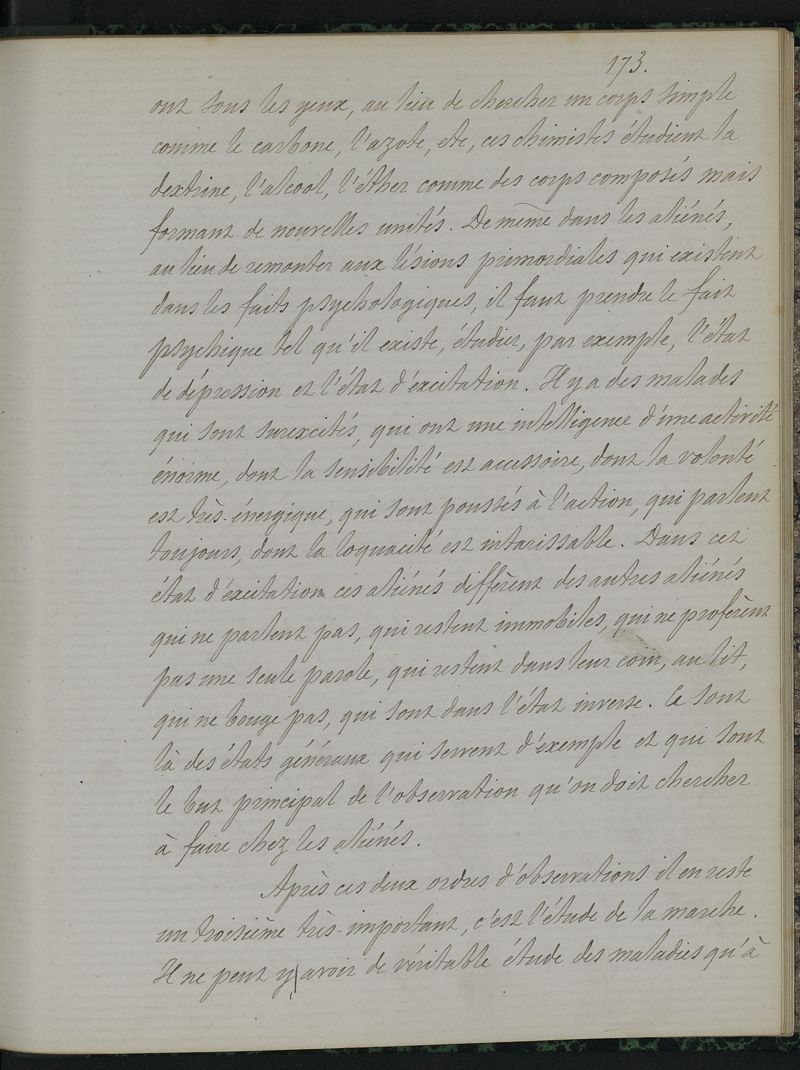 173.
ont sous les yeux, au lieu de chercher un corps simple
comme le carbone, l'azote, etc, ces chimistes étudient la
dextrine, l'alcool, l'éther comme des corps composés mais
formant de nouvelles unités. De même dans les aliénés,
au lieu de remonter aux lésions primordiales qui existent
dans les faits psychologiques, il faut prendre le fait
psychique tel qu'il existe, étudier, par exemple, l'état
de dépression et l'état d'excitation. Il y a des malades
qui sont surexcités, qui ont une intelligence d'une activité
énorme, dont la sensibilité est accessoire, dont la volonté
est très-énergique, qui sont poussés à l'action, qui parlent
toujours, dont la loquacité est intarissable. Dans cet
état d'excitation ces aliénés diffèrent des autres aliénés
qui ne parlent pas, qui restent immobiles, qui ne profèrent
pas une seule parole, qui restent dans leur coin, au lit,
qui ne bouge pas, qui sont dans l'état inverse. Ce sont
là des états généraux qui servent d'exemple et qui sont
le but principal de l'observation qu'on doit chercher
à faire chez les aliénés.
Après ces deux ordres d'observations il en reste
un troisième très-important, c'est l'étude de la marche.
Il ne peut y avoir de véritable étude des maladies qu'à